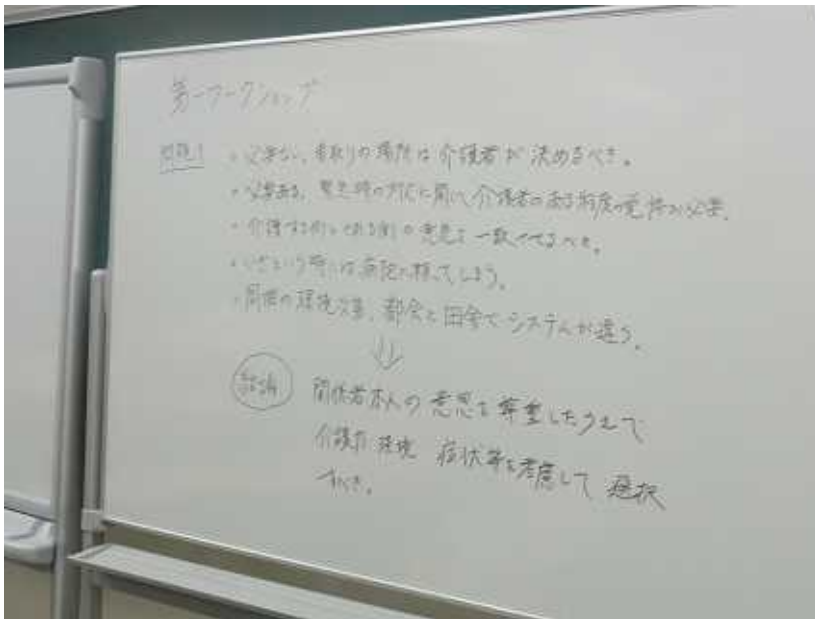 第一ワークショップ
問題1 ・必要ない、看取りの場所は介護者が決めるべき。
・必要ある、緊急時の対応に関して介護者のある程度の覚悟が必要。
・介護する側とされる側の意思を一致させるべき。
・いざという時には病院に頼ってしまう。
・周囲の環境次第、都会と田舎でシステムが違う。
⇓
結論 関係者本人の意思を尊重したうえで
介護力 環境 症状等を考慮して 選択
すべき。